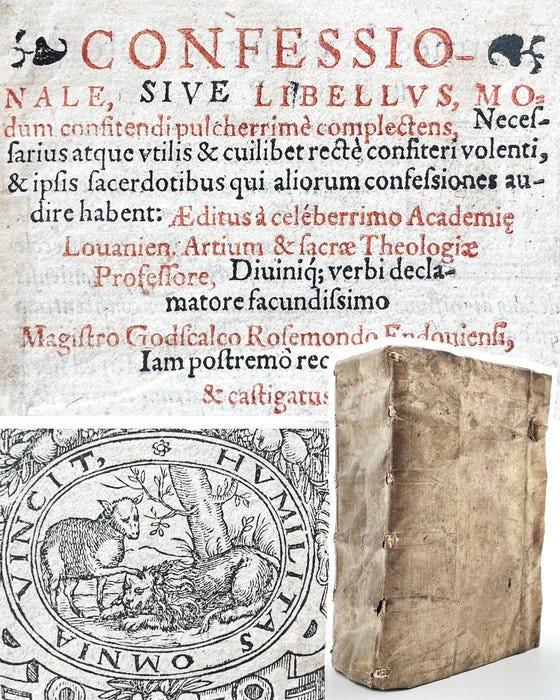 CONFESSIO-
NALE, SIVE LIBELLVS, MO-
dum confitendi pulcherrimè complectens, Necef-
ſarius atque vtilis & cuilibet rectè confiteri volenti,
& ipſis ſacerdotibus qui aliorum confeſsiones au-
dire habent: Æditus à celéberrimo Academię
Louanien. Artium & ſacræ Theologiæ
Profeſſore, Diuiniq; verbi decla-
matore facundiſsimo
Magiſtro Godſcalco Roſemondo Endouienſi,
Iam poſtremò rec
& caſtigatus
HVMILITAS OMNIA VINCIT,